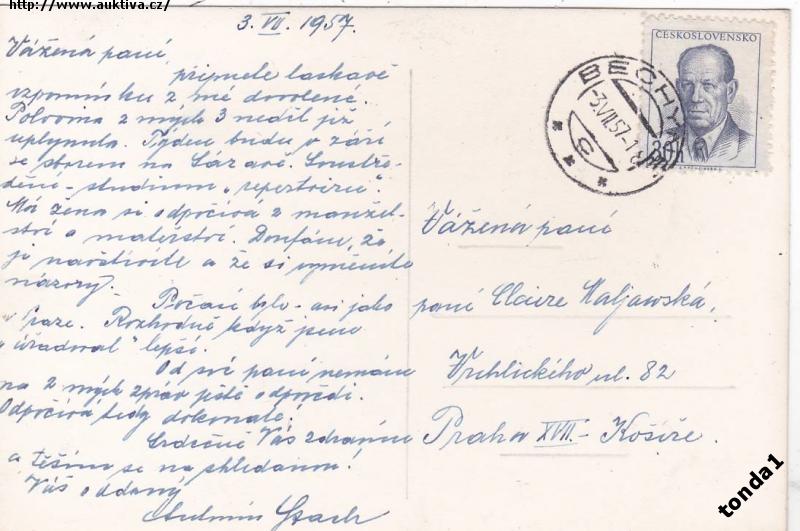 http://www.auktiva.cz/
3. VII. 1957.
Vážená paní
přijměte laskavě
vzpomínku z mé dovolené.
Polovina z mých 3 neděl již
uplynula. Týden budu v září
se sborem na Sázavě. Soustře-
dění - studium „repertoiru“.
Má žena si odpočívá z manžel-
ství a mateřství. Doufáme, že
ji navštívíte a že si vyměníte
názory.
Počasí bylo - asi jako
v Praze. Rozhodně když jsem
„úřadoval“ lepší.
Od své paní nemám
na 2 mých zpráv ještě odpovědi.
Odpočívá tedy dokonale!
Srdečně Vás zdravím
a těším se na shledanou!
Váš oddaný
ČESKOSLOVENSKO
30h
BECHYNĚ
-3.VII.57-1
c
Vážená paní
paní Claire Maljawská,
Vrchlického ul. 82
Praha XVII - Košíře.
tonda1